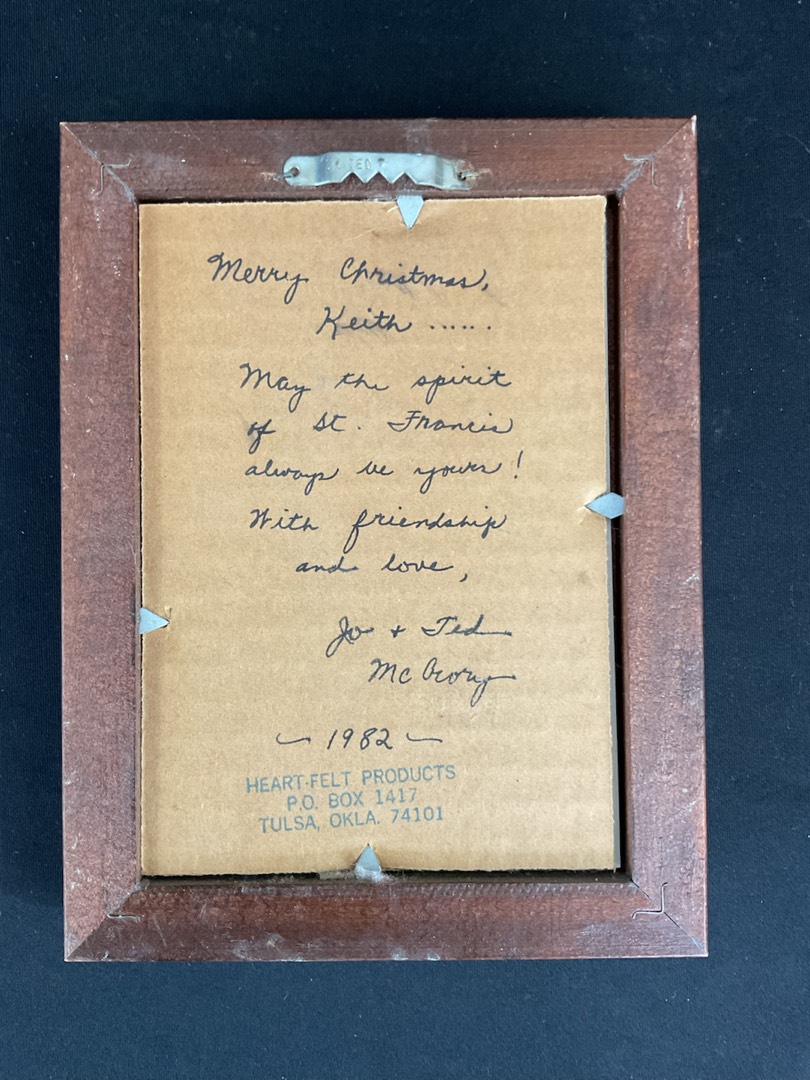 Merry Christmas,
Keith ......
May the spirit
of St. Francis
always be yours!
With friendship
and love,
Jo + Ted
— 1982 —
HEART-FELT PRODUCTS
P.O. BOX 1417
TULSA, OKLA. 74101